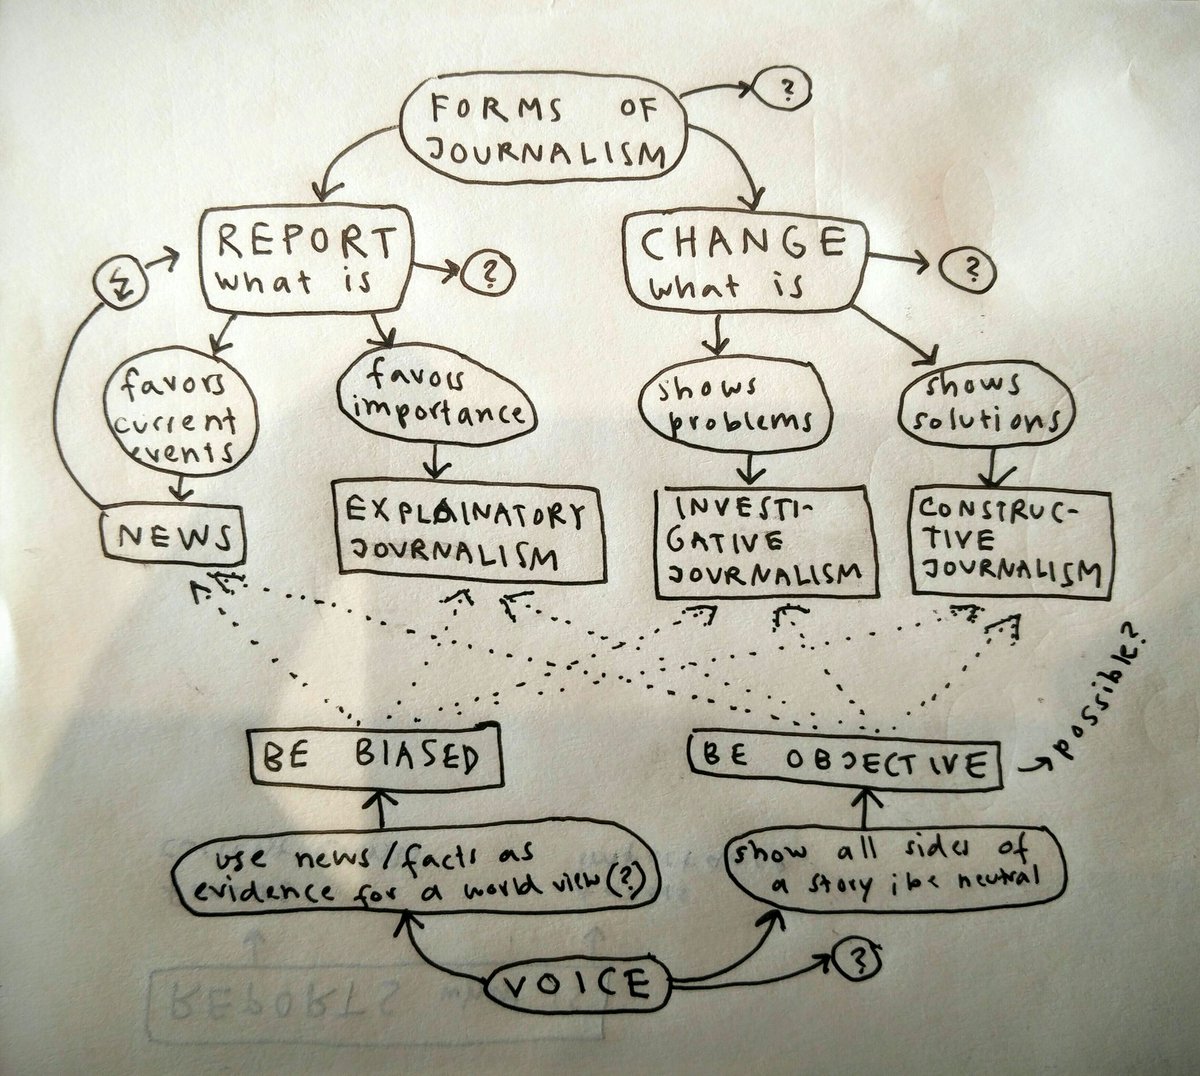 FORMS OF
JOURNALISM
?
REPORT
what is
?
CHANGE
what is
?
favors
current
events
favors
importance
shows
problems
shows
solutions
NEWS
EXPLAINATORY
JOURNALISM
INVESTI-
GATIVE
JOURNALISM
CONSTRUC-
TIVE
JOURNALISM
BE BIASED
BE OBJECTIVE
possible?
use news/facts as
evidence for a world view (?)
show all sides of
a story ; be neutral
VOICE
?
REPORTS